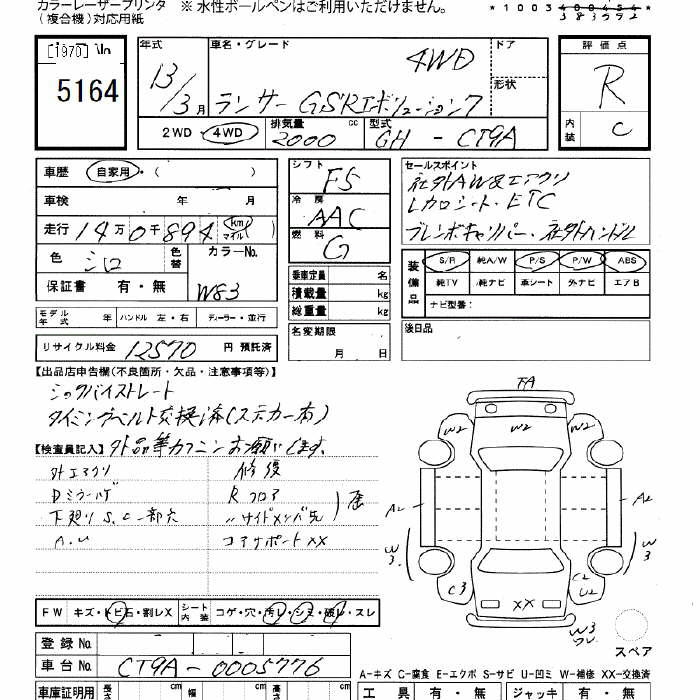 カラーレーザープリンタ ※ 水性ボールペンはご利用いただけません。
(複合機)対応用紙
[1970]
5164
年式 車名・グレード ドア 形状
13/3月 ランサー GSRエボリューション7 4WD
2WD 4WD 排気量 cc 2000 型式 GH - CT9A
評価点 R
内装 C
車歴 自家用・( )
車検 年 月
走行 14万0千894 km マイル
色 シロ 色替 カラーNo. W83
保証書 有・無
モデル年式 年 ハンドル 左・右 ディーラー・並行
リサイクル料金 12570 円 預託済
シフト F5
冷房 AAC
燃料 G
乗車定員 名
積載量 kg
総重量 kg
名変期限 月 日
セールスポイント
社外AW&エアクリ
レカロシート・ETC
ブレンボキャリパー・社外ハンドル
装備品 S/R 純A/W P/S P/W ABS
純TV 純ナビ 革シート 外ナビ エアB
ナビ型番:
後日品
【出品店申告欄(不良箇所・欠品・注意事項等)】
タイミングベルト交換済(ステカー有)
【検査員記入】
外エアクリ 修復
下廻りS.C一部穴
Rフロア
〃サイドメンバ先
コアサポートXX
FA
W2 W2 W2
A2 A2
W3 W3
C3 C2 U2
XX
W3
スペア
FW キズ・トビ石・割レX シート内装 コゲ・穴・汚レ・シミ・破レ・スレ
登録 No.
車台 No. CT9A-0005776
A-キズ C-腐食 E-エクボ S-サビ U-凹ミ W-補修 XX-交換済
車庫証明用 長さ cm 幅 cm 高さ cm
工具 有・無 ジャッキ 有・無